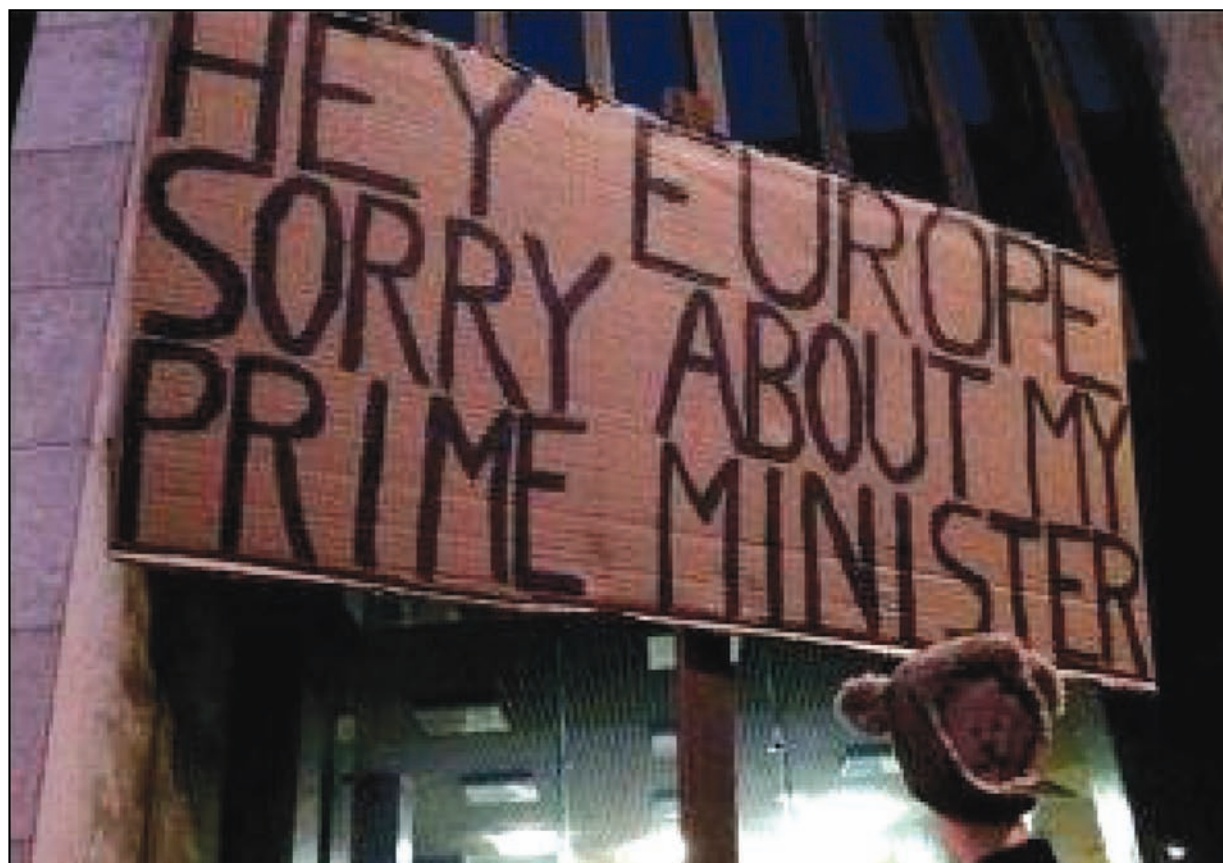 HEY EUROPE
SORRY ABOUT MY
PRIME MINISTER